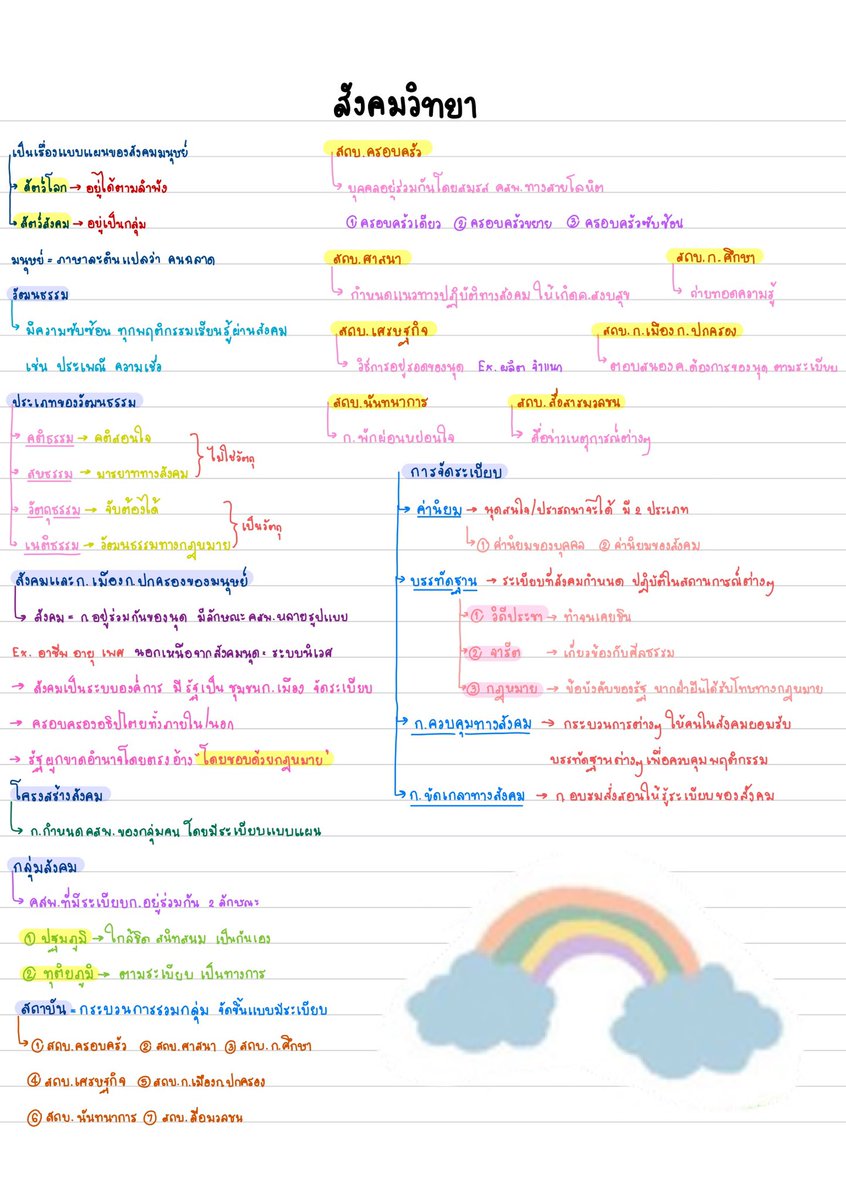 สังคมวิทยา
เป็นเรื่องแบบแผนของสังคมมนุษย์
สัตว์โลก → อยู่ได้ตามลำพัง
สัตว์สังคม → อยู่เป็นกลุ่ม
มนุษย์ = ภาษาละตินแปลว่า คนฉลาด
วัฒนธรรม
มีความซับซ้อน ทุกพฤติกรรมเรียนรู้ผ่านสังคม
เช่น ประเพณี ความเชื่อ
ประเภทของวัฒนธรรม
คติธรรม → คติสอนใจ
สหธรรม → มารยาททางสังคม
ไม่ใช่วัตถุ
วัตถุธรรม → จับต้องได้
เนติธรรม → วัฒนธรรมทางกฎหมาย
เป็นวัตถุ
สังคมและก.เมืองก.ปกครองของมนุษย์
สังคม = ก.อยู่ร่วมกันของมุด มีลักษณะ คสพ.หลายรูปแบบ
Ex. อาชีพ อายุ เพศ นอกเหนือจากสังคมมนุด = ระบบนิเวศ
→ สังคมเป็นระบบองค์การ มีรัฐเป็นชุมชนก.เมือง จัดระเบียบ
→ ครอบครองอธิปไตยทั้งภายใน/นอก
→ รัฐผูกขาดอำนาจโดยตรง อ้าง "โดยชอบด้วยกฎหมาย"
โครงสร้างสังคม
ก.กำหนดคสพ.ของกลุ่มคน โดยมีระเบียบแบบแผน
กลุ่มสังคม
คสพ.ที่มีระเบียบก.อยู่ร่วมกัน 2 ลักษณะ
① ปฐมภูมิ → ใกล้ชิด สนิทสนม เป็นกันเอง
② ทุติยภูมิ → ตามระเบียบ เป็นทางการ
สถาบัน = กระบวนการรวมกลุ่ม จัดขึ้นแบบมีระเบียบ
① สถบ.ครอบครัว ② สถบ.ศาสนา ③ สถบ.ก.ศึกษา
④ สถบ.เศรษฐกิจ ⑤ สถบ.ก.เมืองก.ปกครอง
⑥ สถบ.นันทนาการ ⑦ สถบ.สื่อมวลชน
สถบ.ครอบครัว
บุคคลอยู่ร่วมกันโดยสมรส คสพ.ทางสายโลหิต
① ครอบครัวเดี่ยว ② ครอบครัวขยาย ③ ครอบครัวซับซ้อน
สถบ.ศาสนา
กำหนดแนวทางปฏิบัติทางสังคม ให้เกิดค.สงบสุข
สถบ.ก.ศึกษา
ถ่ายทอดความรู้
สถบ.เศรษฐกิจ
วิธีการอยู่รอดของมุด Ex. ผลิต จำแนก
สถบ.ก.เมืองก.ปกครอง
ตอบสนองค.ต้องการของมุด ตามระเบียบ
สถบ.นันทนาการ
ก.พักผ่อนหย่อนใจ
สถบ.สื่อสารมวลชน
สื่อข่าวเหตุการณ์ต่างๆ
การจัดระเบียบ
ค่านิยม → มุดสนใจ/ปรารถนาจะได้ มี 2 ประเภท
① ค่านิยมของบุคคล ② ค่านิยมของสังคม
บรรทัดฐาน → ระเบียบที่สังคมกำหนด ปฏิบัติในสถานการณ์ต่างๆ
① วิถีประชา → ทำจนเคยชิน
② จารีต → เกี่ยวข้องกับศีลธรรม
③ กฎหมาย → ข้อบังคับของรัฐ หากฝ่าฝืนได้รับโทษทางกฎหมาย
ก.ควบคุมทางสังคม → กระบวนการต่างๆ ให้คนในสังคมยอมรับ
บรรทัดฐานต่างๆ เพื่อควบคุมพฤติกรรม
ก.ขัดเกลาทางสังคม → ก.อบรมสั่งสอนให้รู้ระเบียบของสังคม